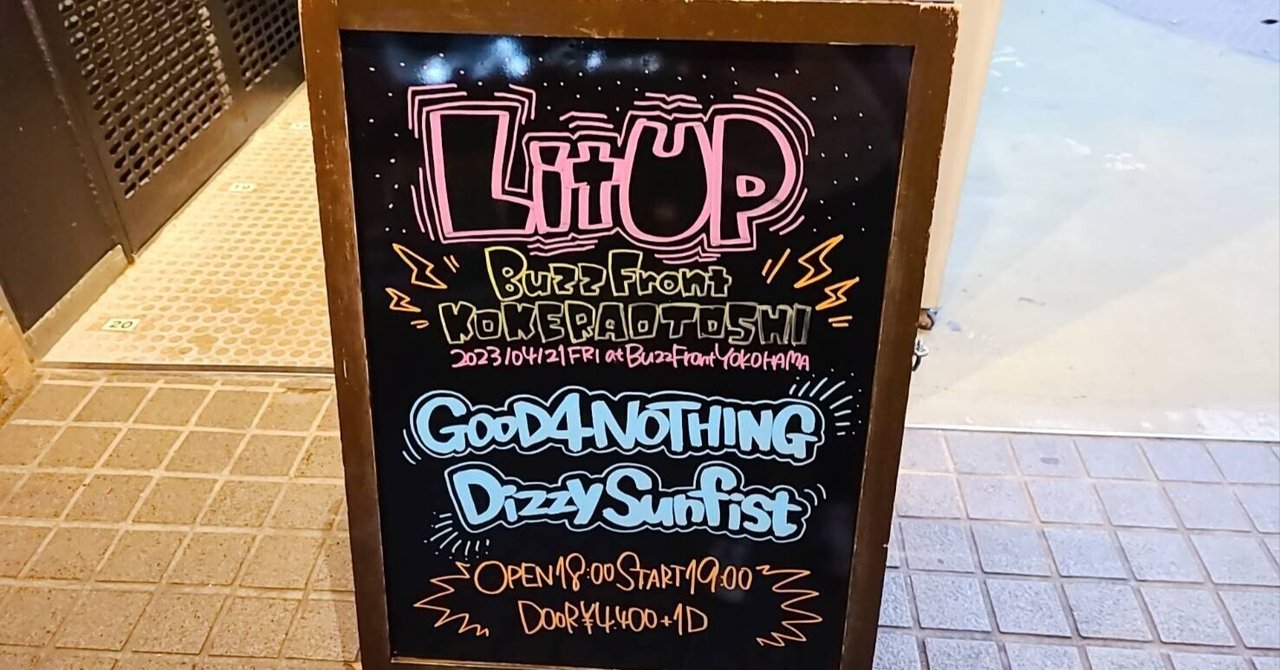 LitUP
Buzz Front
KOKERAOTOSHI
2023/04/21 FRI at BuzzFront YOKOHAMA
GOOD4NOTHING
Dizzy Sunfist
OPEN18:00 START19:00
DOOR¥4.400+1D
19
20